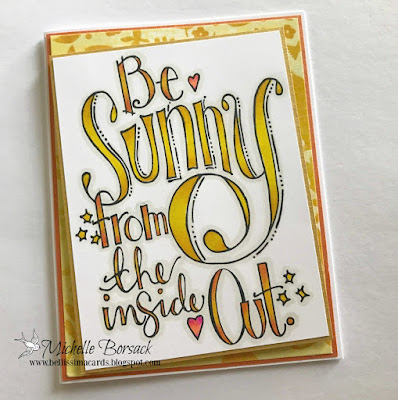 Be
Sunny
from
the
inside
Out.
Michelle Borsack
www.bellissimacards.blogspot.com